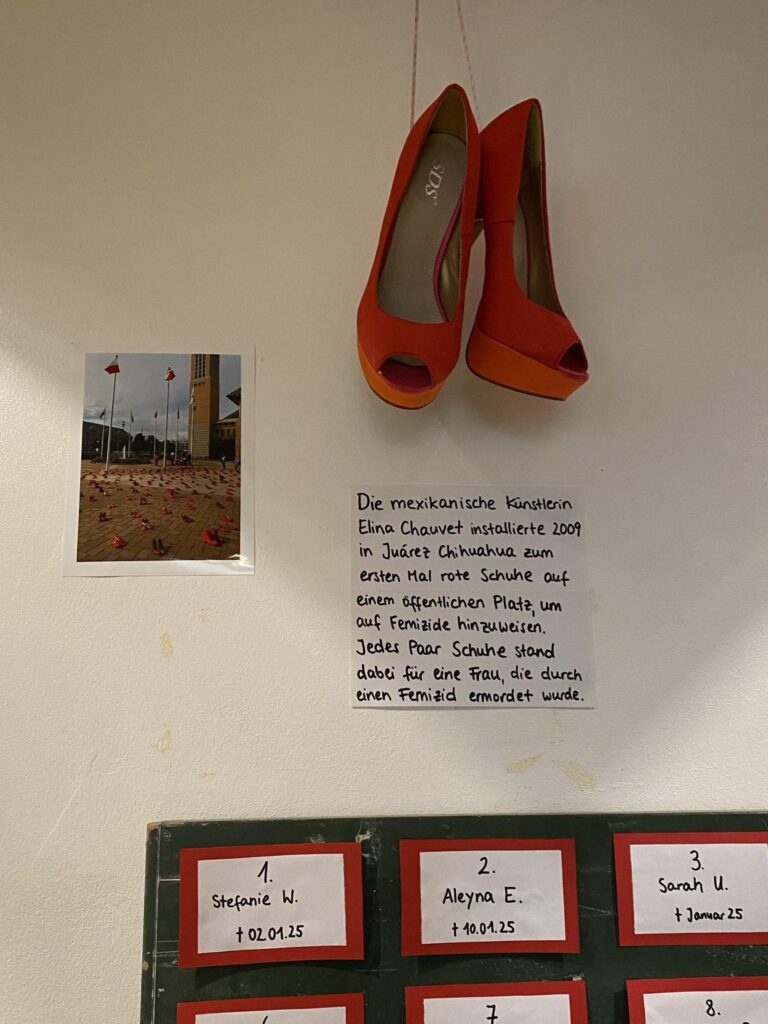 SDS
Die mexikanische Künstlerin
Elina Chauvet installierte 2009
in Juárez Chihuahua zum
ersten Mal rote Schuhe auf
einem öffentlichen Platz, um
auf Femizide hinzuweisen.
Jedes Paar Schuhe stand
dabei für eine Frau, die durch
einen Femizid ermordet wurde.
1.
Stefanie W.
† 02.01.25
2.
Aleyna E.
† 10.01.25
3.
Sarah U.
† Januar 25
7.
8.